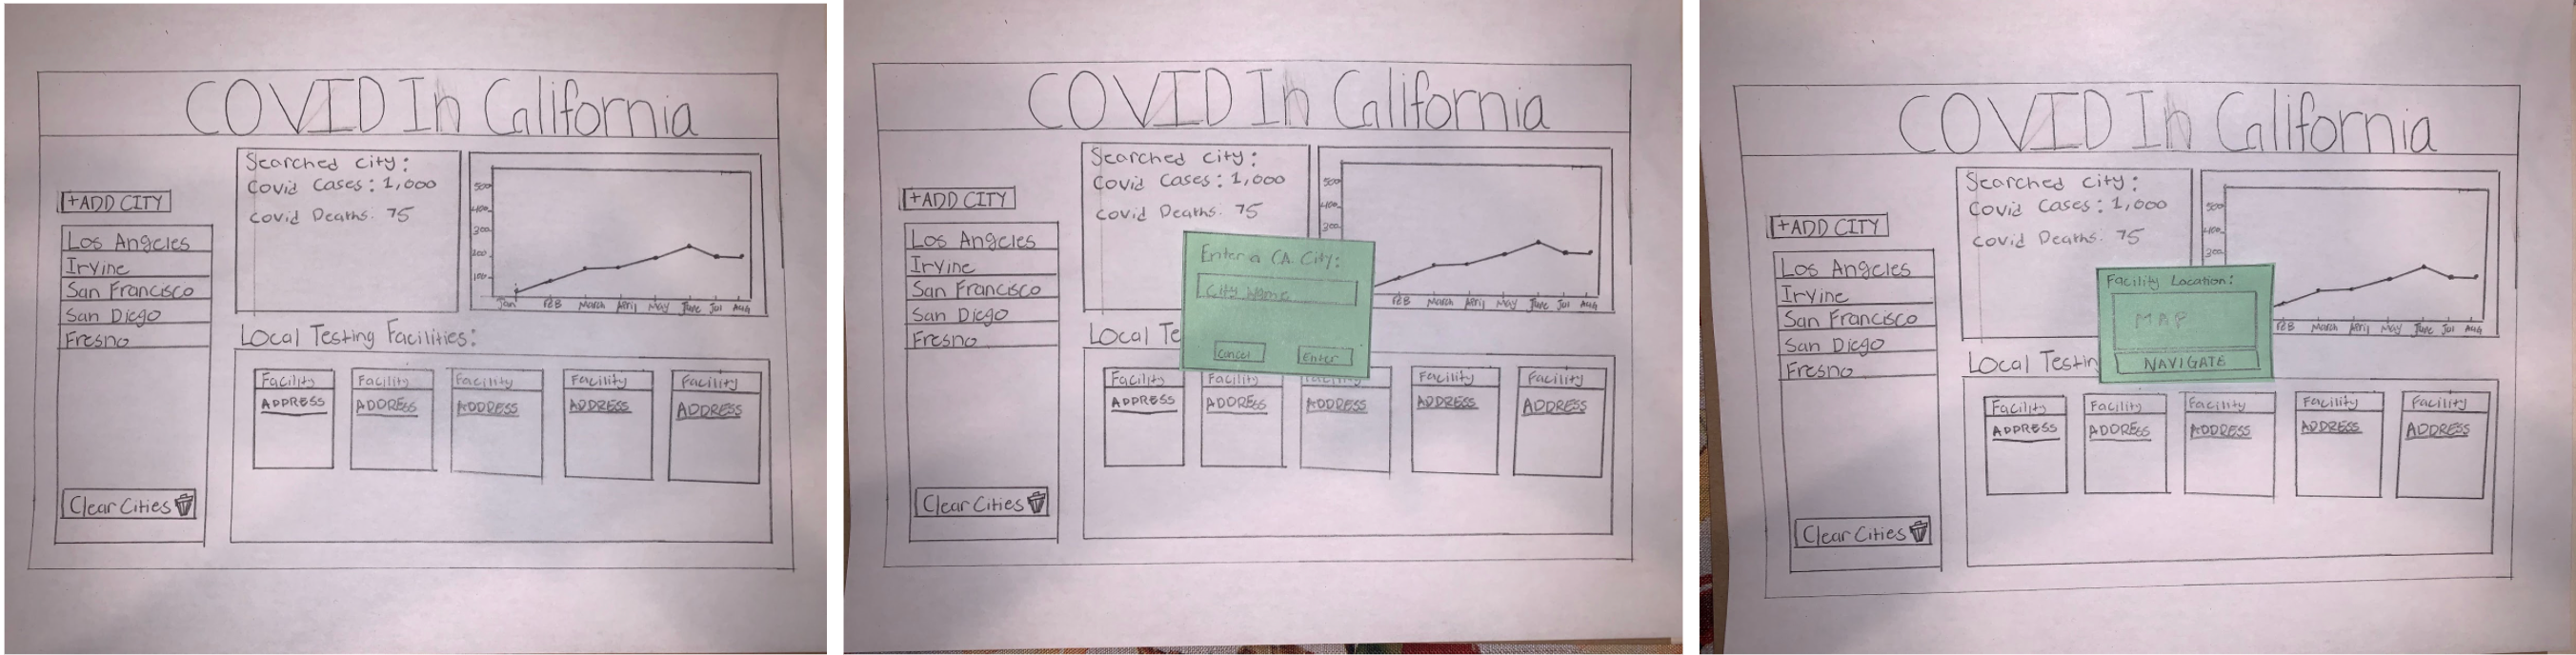 COVID In California
+ADD CITY
Los Angeles
Irvine
San Francisco
San Diego
Fresno
Clear Cities
Searched city:
Covid Cases: 1,000
Covid Deaths: 75
500
400
300
200
100
Jan Feb March April May June Jul Aug
Local Testing Facilities:
Facility Facility Facility Facility Facility
ADDRESS ADDRESS ADDRESS ADDRESS ADDRESS
COVID In California
+ADD CITY
Los Angeles
Irvine
San Francisco
San Diego
Fresno
Clear Cities
Searched city:
Covid Cases: 1,000
Covid Deaths: 75
500
400
300
Feb March April May June Jul Aug
Enter a CA City:
City Name
Cancel Enter
Local Te
Facility Facility Facility Facility Facility
ADDRESS ADDRESS ADDRESS ADDRESS ADDRESS
COVID In California
+ADD CITY
Los Angeles
Irvine
San Francisco
San Diego
Fresno
Clear Cities
Searched city:
Covid Cases: 1,000
Covid Deaths: 75
500
400
300
Feb March April May June Jul Aug
Facility Location:
MAP
NAVIGATE
Local Testin
Facility Facility Facility Facility Facility
ADDRESS ADDRESS ADDRESS ADDRESS ADDRESS